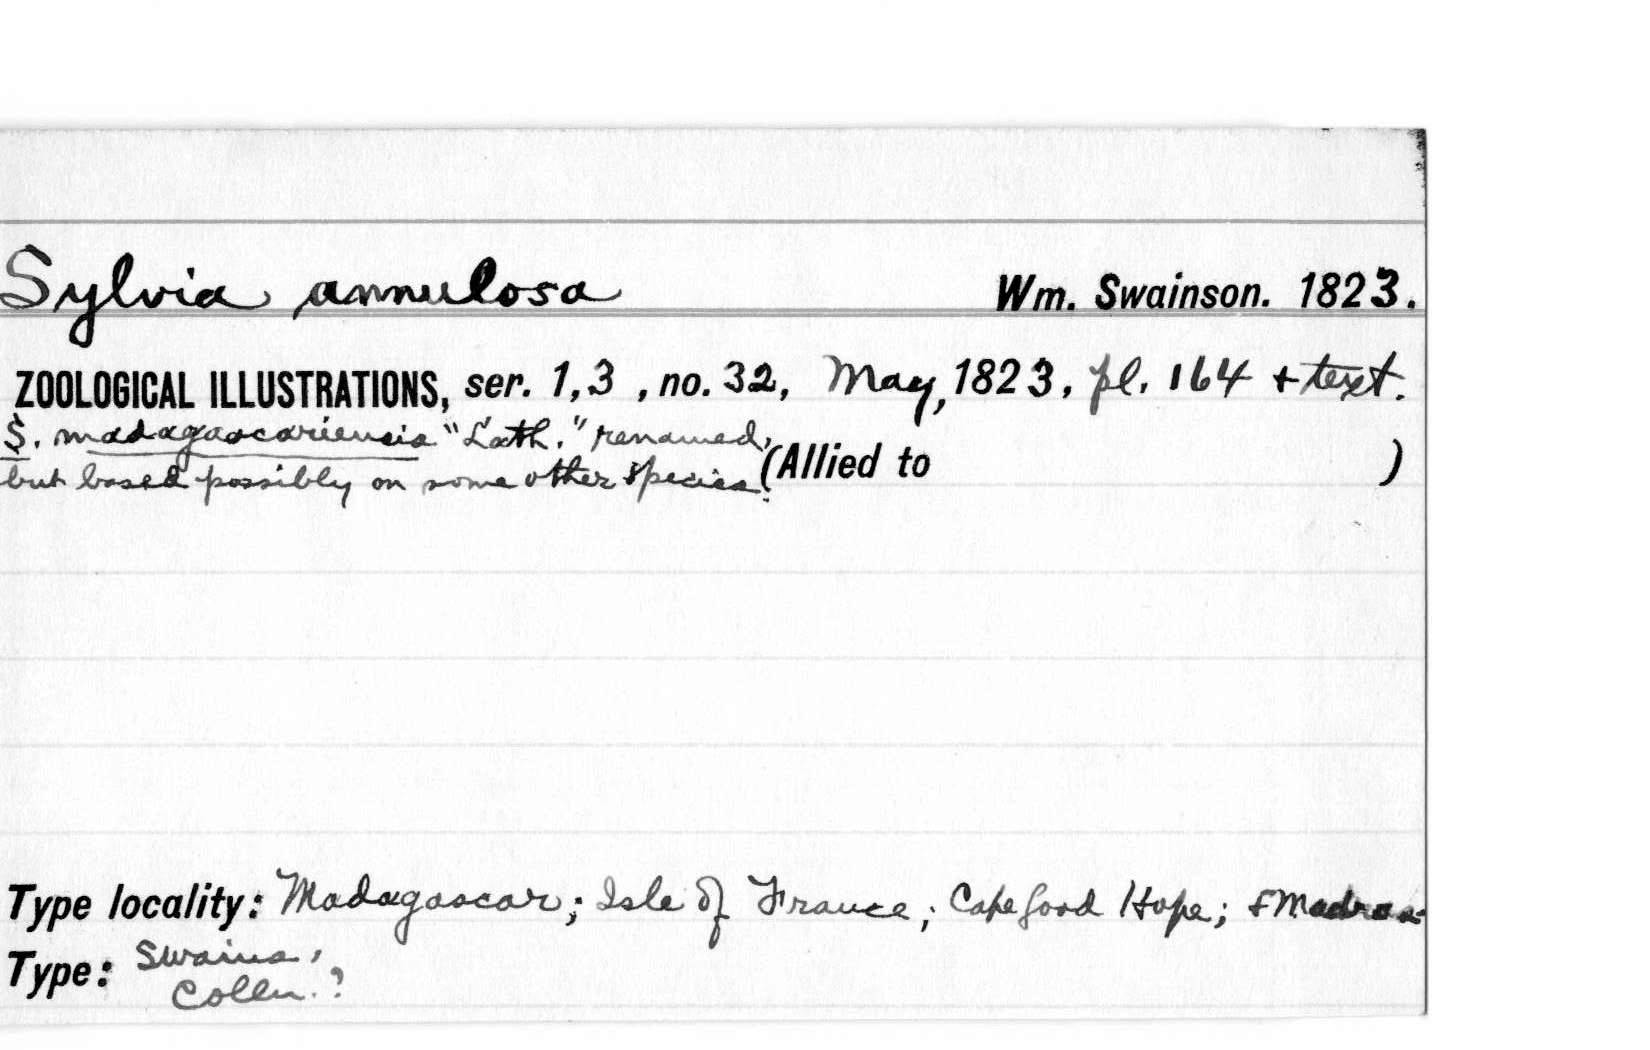 Sylvia annulosa Wm. Swainson. 1823.
ZOOLOGICAL ILLUSTRATIONS, ser. 1, 3 , no. 32, May, 1823. pl. 164 + text.
S. madagascariensis "Lath." renamed,
but based possibly on some other species. (Allied to )
Type locality: Madagascar; Isle of France; Cape Good Hope; + Madras
Type: Swains.
Colln.?